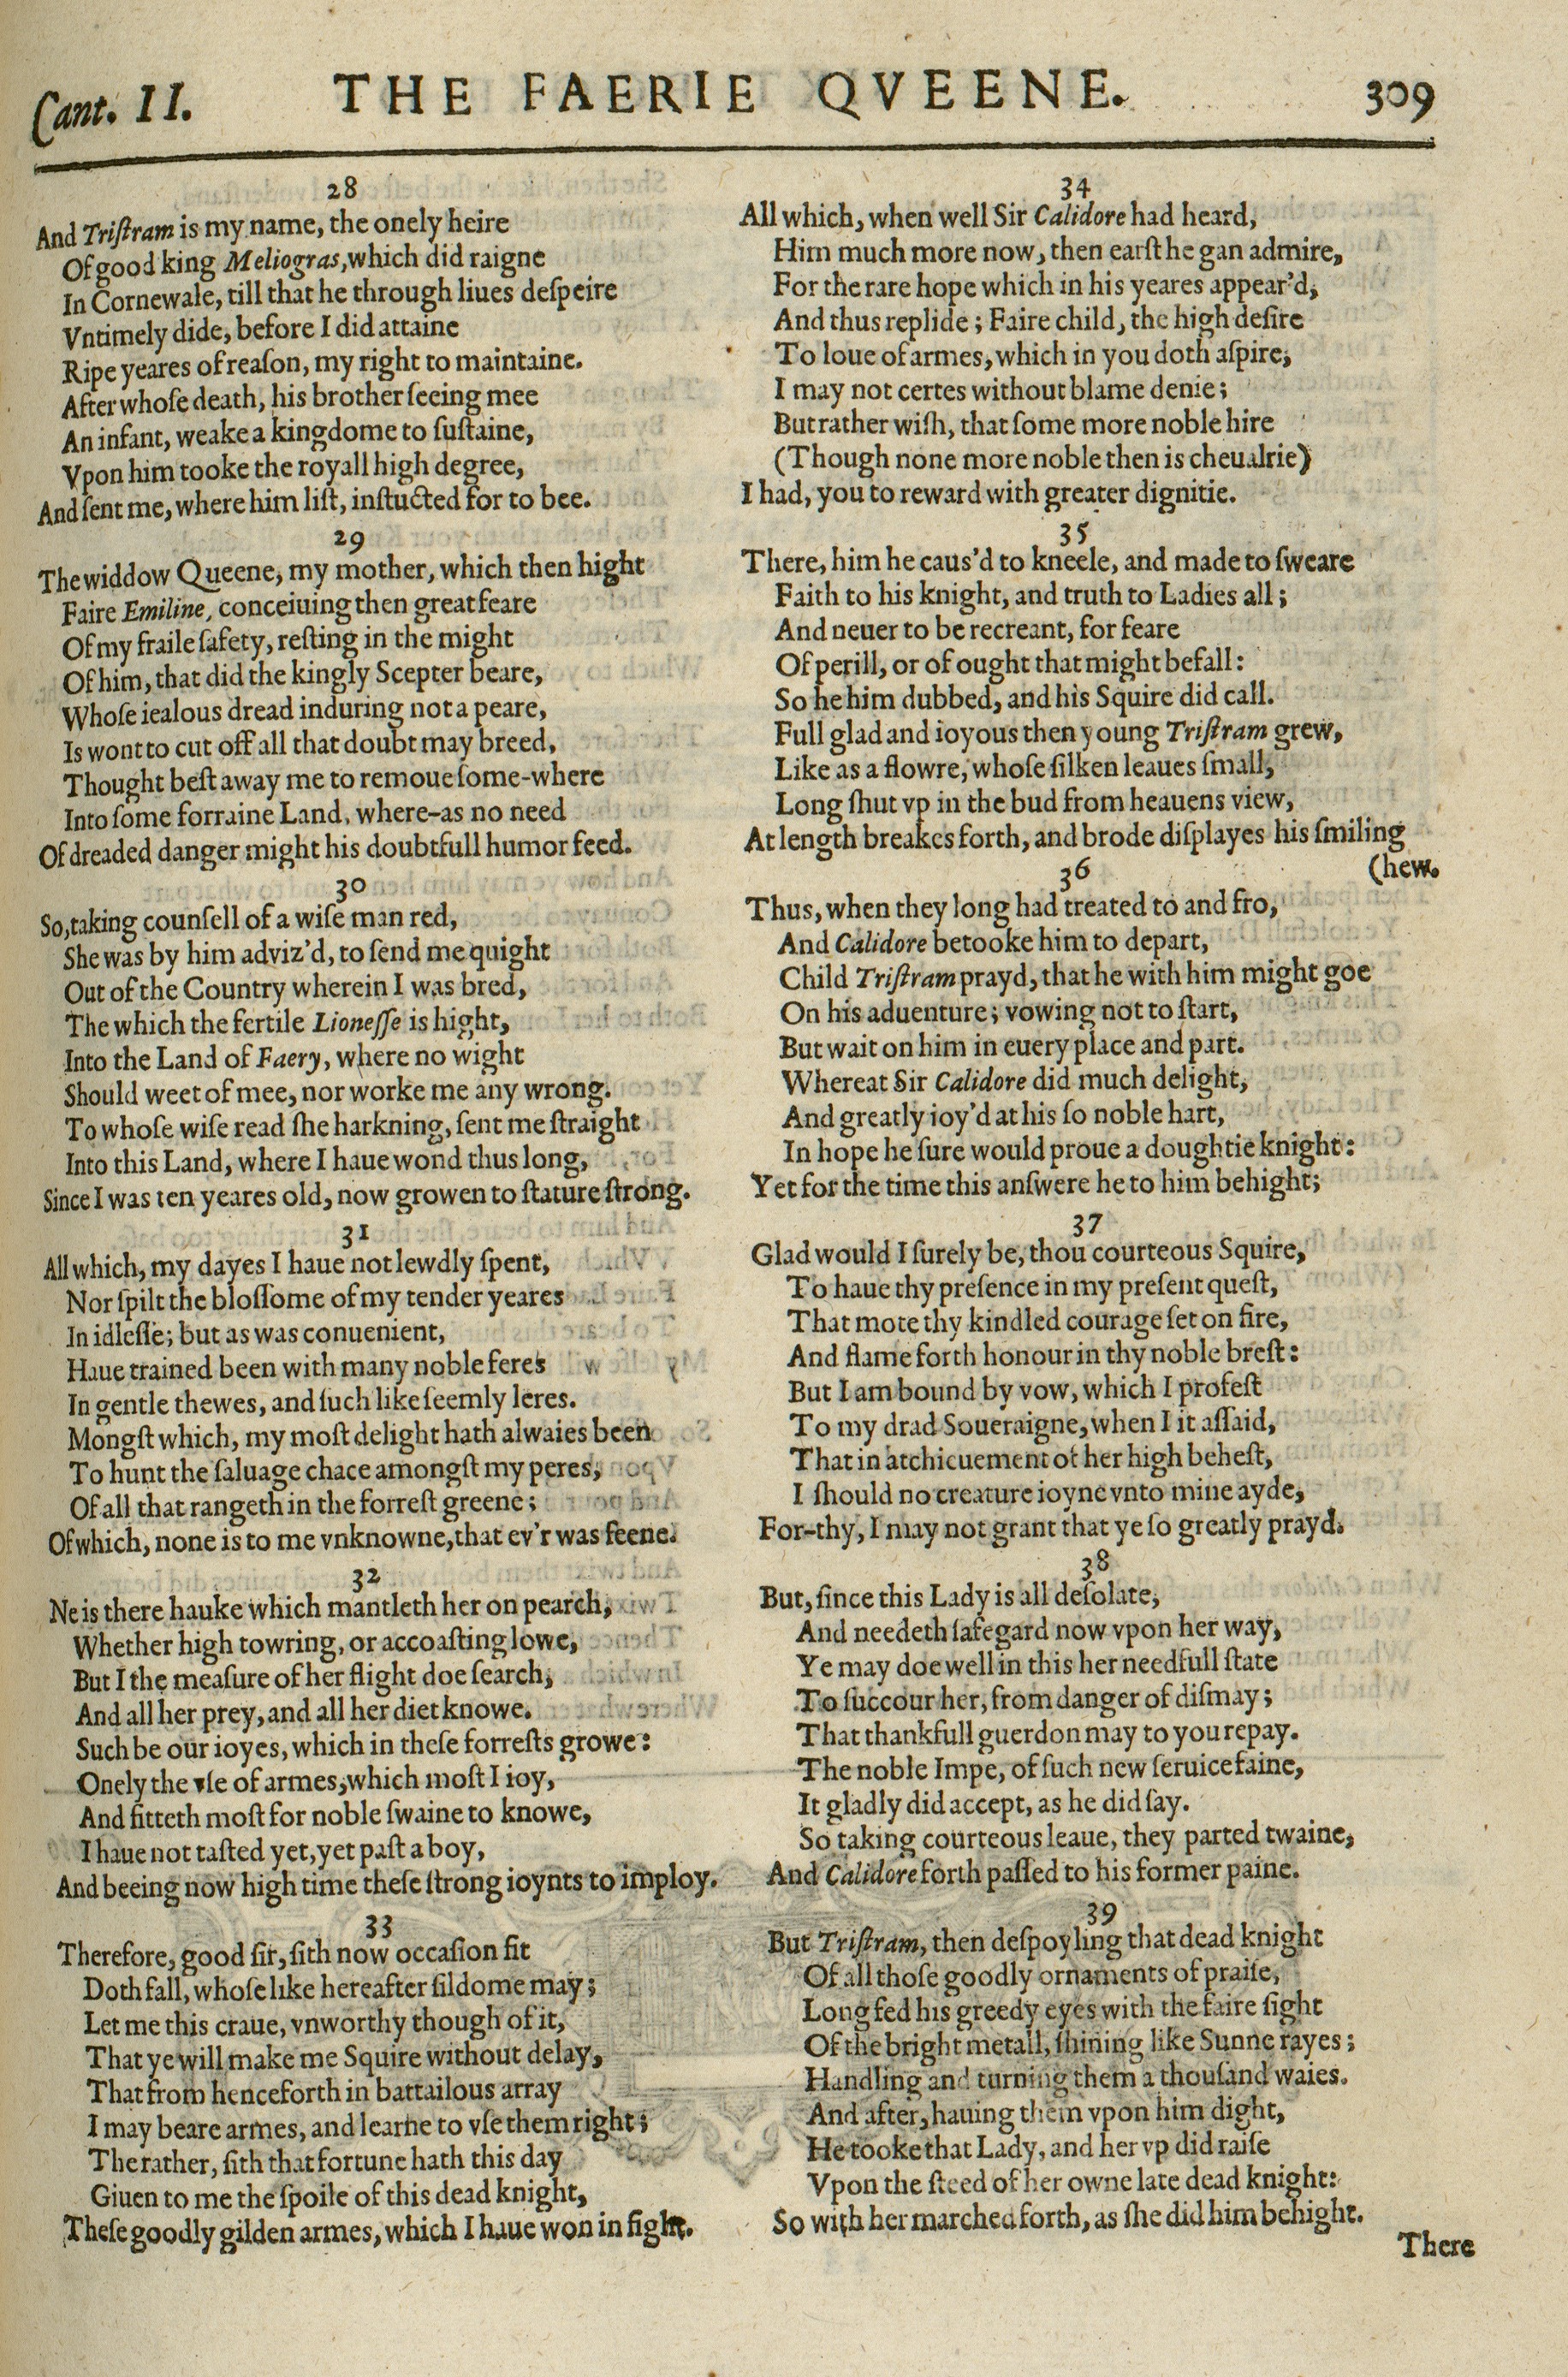 Cant. II. THE FAERIE QVEENE. 309
28
And Triſtram is my name, the onely heire
Of good king Meliogras, which did raigne
In Cornewale, till that he through liues deſpeire
Vntimely dide, before I did attaine
Ripe yeares of reaſon, my right to maintaine.
After whoſe death, his brother ſeeing mee
An infant, weake a kingdome to ſuſtaine,
Vpon him tooke the royall high degree,
And ſent me, where him liſt, inſtucted for to bee.
29
The widdow Queene, my mother, which then hight
Faire Emiline, conceiuing then great feare
Of my fraile ſafety, reſting in the might
Of him, that did the kingly Scepter beare,
Whoſe iealous dread induring not a peare,
Is wont to cut off all that doubt may breed,
Thought beſt away me to remoue ſome-where
Into ſome forraine Land, where-as no need
Of dreaded danger might his doubtfull humor feed.
30
So, taking counſell of a wiſe man red,
She was by him adviz'd, to ſend me quight
Out of the Country wherein I was bred,
The which the fertile Lioneſſe is hight,
Into the Land of Faery, where no wight
Should weet of mee, nor worke me any wrong.
To whoſe wiſe read ſhe harkning, ſent me ſtraight
Into this Land, where I haue wond thus long,
Since I was ten yeares old, now growen to ſtature ſtrong.
31
All which, my dayes I haue not lewdly ſpent,
Nor ſpilt the bloſſome of my tender yeares
In idleſſe; but as was conuenient,
Haue trained been with many noble feres
In gentle thewes, and ſuch like ſeemly leres.
Mongſt which, my moſt delight hath alwaies been
To hunt the ſaluage chace amongſt my peres,
Of all that rangeth in the forreſt greene;
Of which, none is to me vnknowne, that ev'r was ſeene.
32
Ne is there hauke which mantleth her on pearch,
Whether high towring, or accoaſting lowe,
But I the meaſure of her flight doe ſearch,
And all her prey, and all her diet knowe.
Such be our ioyes, which in theſe forreſts growe:
Onely the vſe of armes, which moſt I ioy,
And fitteth moſt for noble ſwaine to knowe,
I haue not taſted yet, yet paſt a boy,
And beeing now high time theſe ſtrong ioynts to imploy.
33
Therefore, good ſir, ſith now occaſion fit
Doth fall, whoſe like hereafter ſildome may;
Let me this craue, vnworthy though of it,
That ye will make me Squire without delay,
That from henceforth in battailous array
I may beare armes, and learne to vſe them right;
The rather, ſith that fortune hath this day
Giuen to me the ſpoile of this dead knight,
Theſe goodly gilden armes, which I haue won in fight.
34
All which, when well Sir Calidore had heard,
Him much more now, then earſt he gan admire,
For the rare hope which in his yeares appear'd,
And thus replide; Faire child, the high deſire
To loue of armes, which in you doth aſpire,
I may not certes without blame denie;
But rather wiſh, that ſome more noble hire
(Though none more noble then is cheualrie)
I had, you to reward with greater dignitie.
35
There, him he caus'd to kneele, and made to ſweare
Faith to his knight, and truth to Ladies all;
And neuer to be recreant, for feare
Of perill, or of ought that might befall:
So he him dubbed, and his Squire did call.
Full glad and ioyous then young Triſtram grew,
Like as a flowre, whoſe ſilken leaues ſmall,
Long ſhut vp in the bud from heauens view,
At length breakes forth, and brode diſplayes his ſmiling
(hew.
36
Thus, when they long had treated to and fro,
And Calidore betooke him to depart,
Child Triſtram prayd, that he with him might goe
On his aduenture; vowing not to ſtart,
But wait on him in euery place and part.
Whereat Sir Calidore did much delight,
And greatly ioy'd at his ſo noble hart,
In hope he ſure would proue a doughtie knight:
Yet for the time this anſwere he to him behight;
37
Glad would I ſurely be, thou courteous Squire,
To haue thy preſence in my preſent queſt,
That mote thy kindled courage ſet on fire,
And flame forth honour in thy noble breſt:
But I am bound by vow, which I profeſt
To my drad Soueraigne, when I it aſſaid,
That in atchieuement of her high beheſt,
I ſhould no creature ioyne vnto mine ayde,
For-thy, I may not grant that ye ſo greatly prayd.
38
But, ſince this Lady is all deſolate,
And needeth ſafegard now vpon her way,
Ye may doe well in this her needfull ſtate
To ſuccour her, from danger of diſmay;
That thankfull guerdon may to you repay.
The noble Impe, of ſuch new ſeruice faine,
It gladly did accept, as he did ſay.
So taking courteous leaue, they parted twaine,
And Calidore forth paſſed to his former paine.
39
But Triſtram, then deſpoyling that dead knight
Of all thoſe goodly ornaments of praiſe,
Long fed his greedy eyes with the faire ſight
Of the bright metall, ſhining like Sunne rayes;
Handling and turning them a thouſand waies.
And after, hauing them vpon him dight,
He tooke that Lady, and her vp did raiſe
Vpon the ſteed of her owne late dead knight:
So with her marched forth, as ſhe did him behight.
There